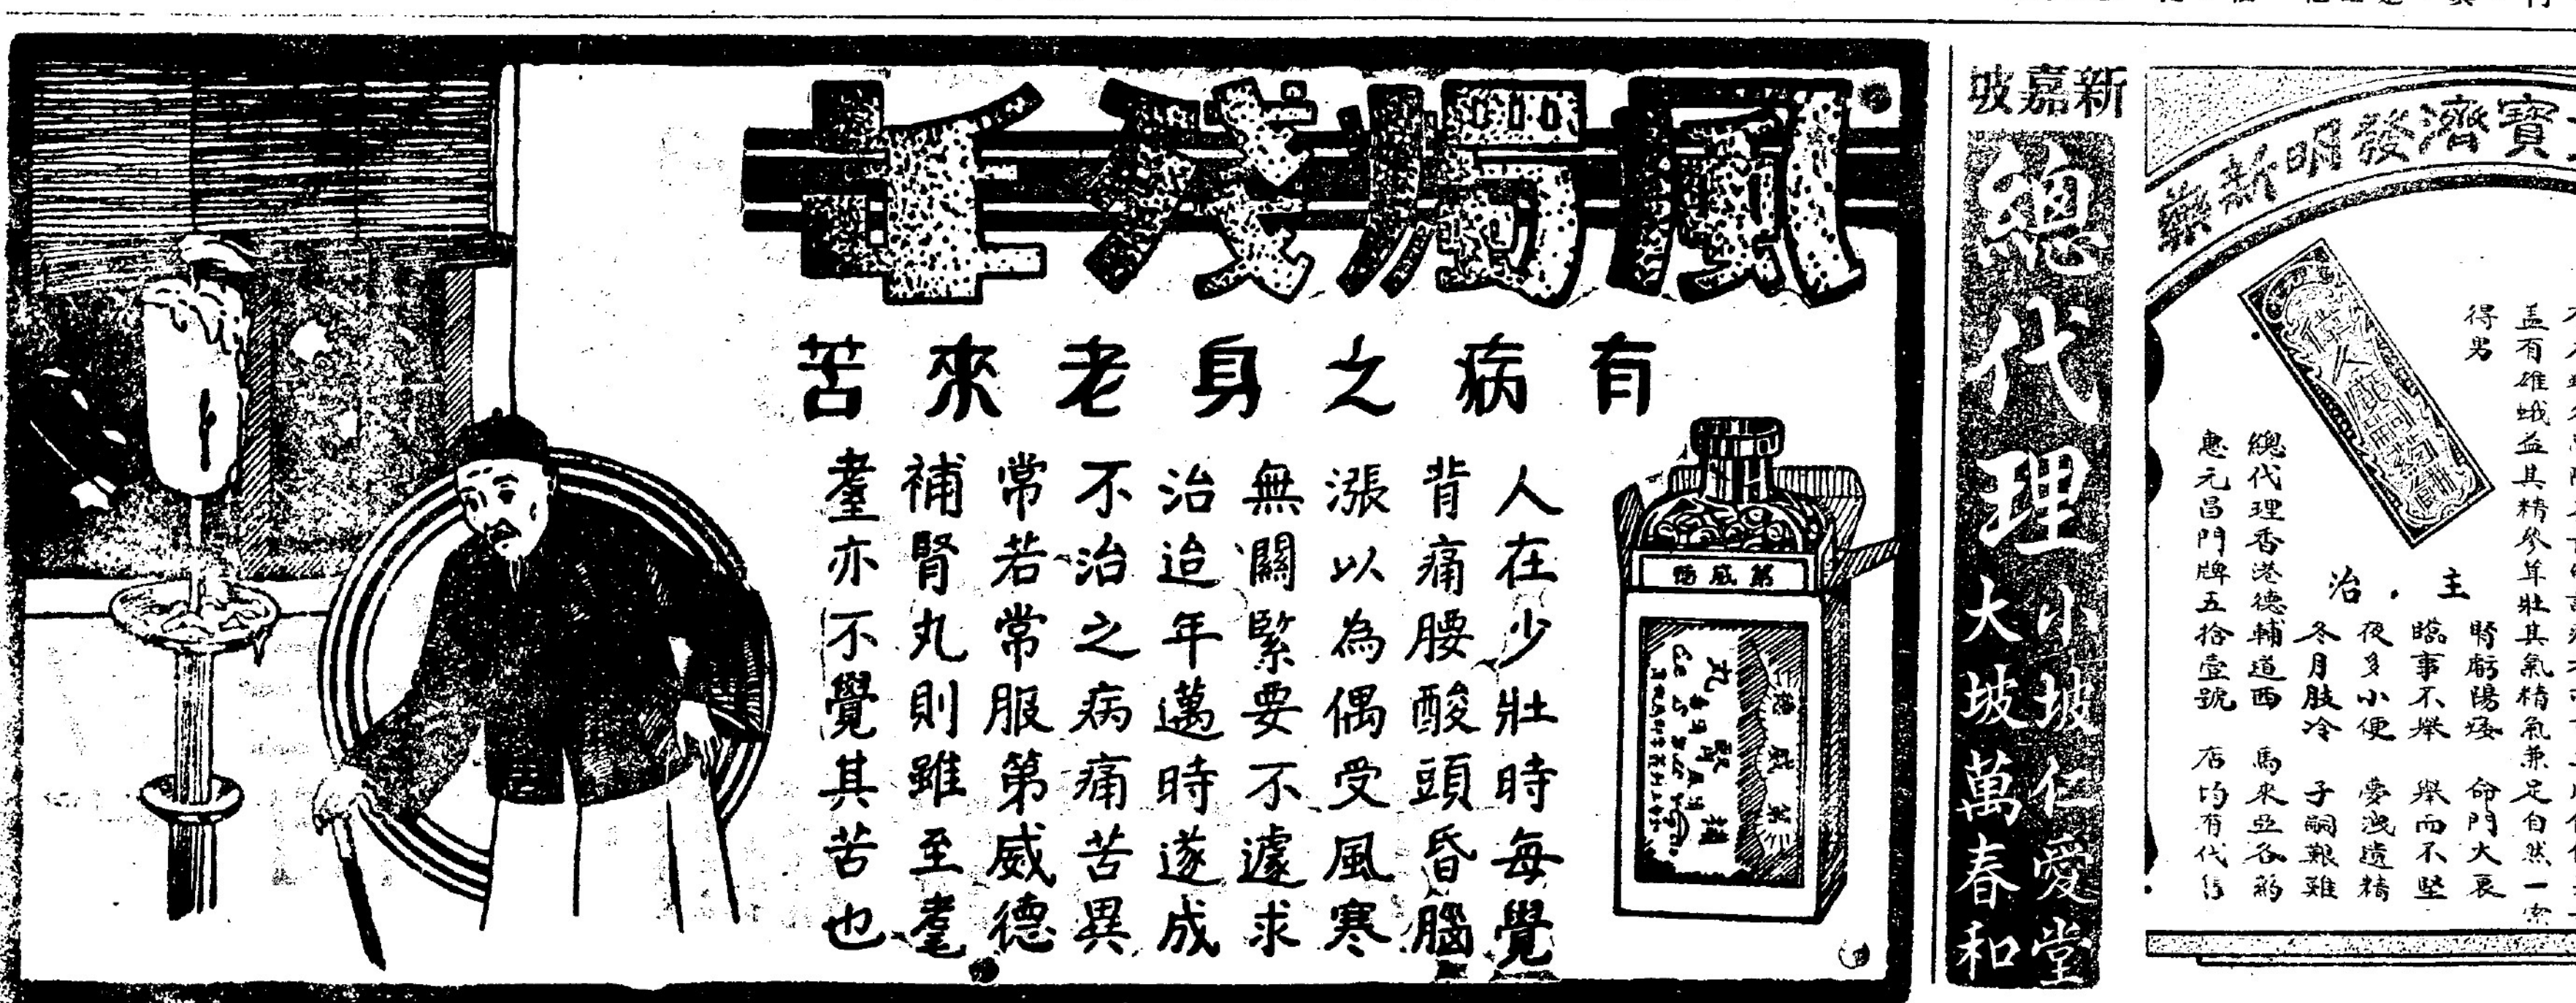 風燭殘年
有病之身老來苦
人在少壯時每覺
背痛腰酸頭昏腦
漲以為偶受風寒
無關緊要不遽求
治迨年邁時遂成
不治之病痛苦異
常若常服第威德
補腎丸則雖至耄
耋亦不覺其苦也
新嘉坡
總代理
小坡仁愛堂
大坡萬春和
寶濟發明新藥
蓋有雄蛾益其精參茸壯其氣精氣兼足自然一索
得男
主治
腎虧陽痿 命門大衰
臨事不舉 舉而不堅
夜多小便 夢洩遺精
冬月肢冷 子嗣艱難
總代理香港德輔道西 馬來亞各藥
惠元昌門牌五拾壹號 店均有代售